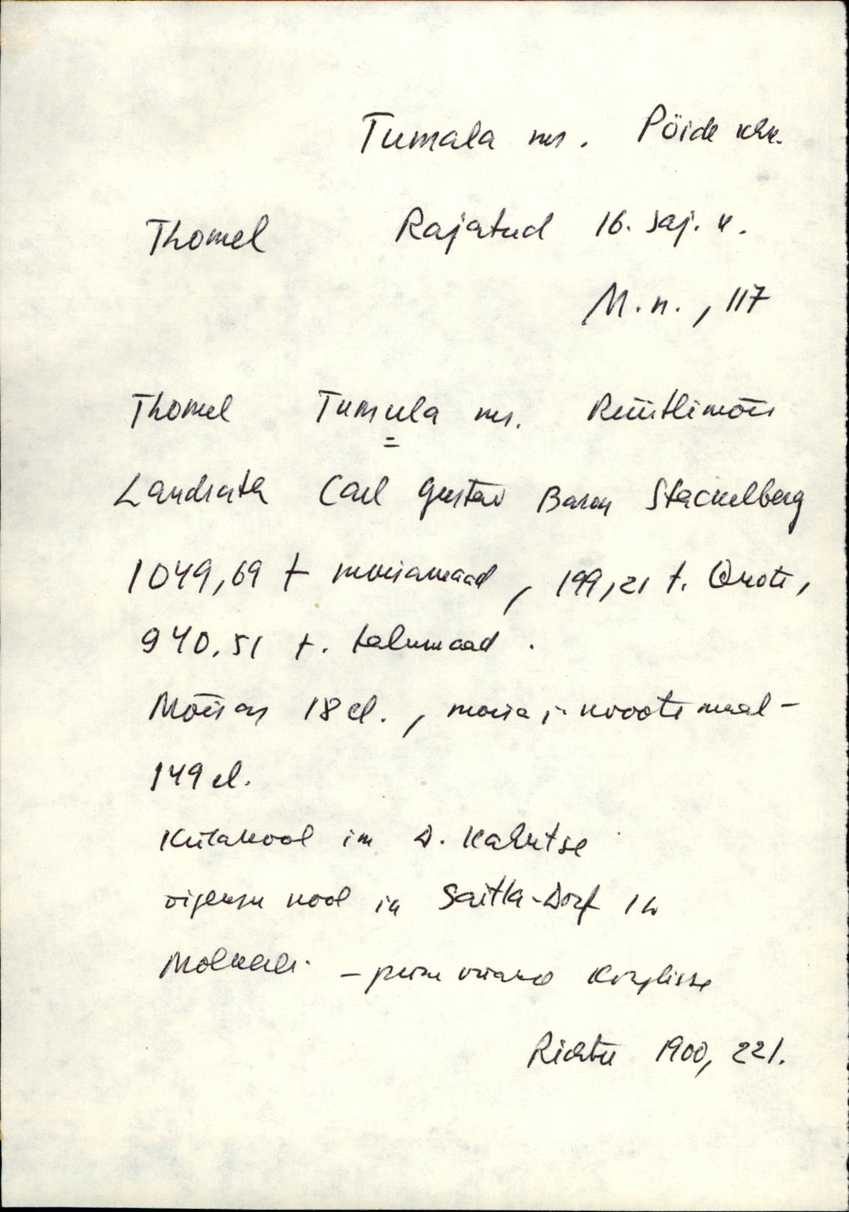 Tumala ms. Pöide khk.
Thomel Rajatud 16. saj. k.
M.n., 117
Thomel Tumula ms. Rüütlimõis
Landrath Carl Gustav Baron Stackelberg
1049,69 t moisamaad, 199,21 t. Qvote,
940,51 t. talumaad.
Mõisas 18 el., moisa ja kvoote maal -
149 el.
Külakool im D. Kahutse
õigeusu kool in Saitla-Dorf in
- Koiglisse
Richter 1900, 221.